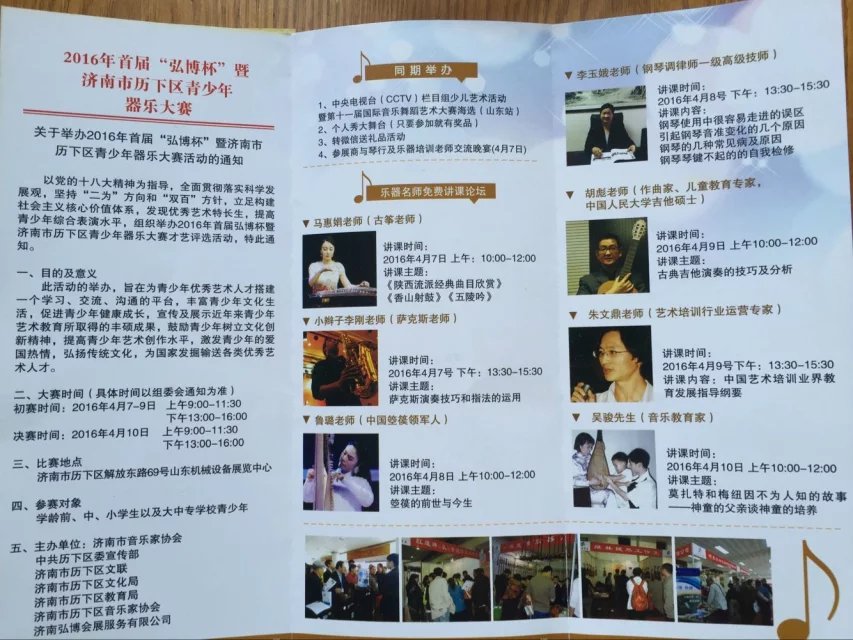 2016年首届“弘博杯”暨
济南市历下区青少年
器乐大赛
关于举办2016年首届“弘博杯”暨济南市
历下区青少年器乐大赛活动的通知
以党的十八大精神为指导，全面贯彻落实科学发
展观，坚持“二为”方向和“双百”方针，立足构建
社会主义核心价值体系，发现优秀艺术特长生，提高
青少年综合表演水平，组织举办2016年首届弘博杯暨
济南市历下区青少年器乐大赛才艺评选活动，特此通
知。
一、目的及意义
此活动的举办，旨在为青少年优秀艺术人才搭建
一个学习、交流、沟通的平台，丰富青少年文化生
活，促进青少年健康成长，宣传及展示近年来青少年
艺术教育所取得的丰硕成果，鼓励青少年树立文化创
新精神，提高青少年艺术创作水平，激发青少年的爱
国热情，弘扬传统文化，为国家发掘输送各类优秀艺
术人才。
二、大赛时间（具体时间以组委会通知为准）
初赛时间：2016年4月7-9日 上午9:00-11:30
下午13:00-16:00
决赛时间：2016年4月10日 上午9:00-11:30
下午13:00-16:00
三、比赛地点
济南市历下区解放东路69号山东机械设备展览中心
四、参赛对象
学龄前、中、小学生以及大中专学校青少年
五、主办单位：济南市音乐家协会
中共历下区委宣传部
济南市历下区文联
济南市历下区文化局
济南市历下区教育局
济南市历下区音乐家协会
济南弘博会展服务有限公司
同期举办
1、中央电视台（CCTV）栏目组少儿艺术活动
暨第十一届国际音乐舞蹈艺术大赛海选（山东站）
2、个人秀大舞台（只要参加就有奖品）
3、转微信送礼品活动
4、参展商与琴行及乐器培训老师交流晚宴(4月7日)
乐器名师免费讲课论坛
马惠娟老师（古筝老师）
讲课时间：
2016年4月7日 上午：10:00-12:00
讲课主题：
《陕西流派经典曲目欣赏》
《香山射鼓》《五陵吟》
小辫子李刚老师（萨克斯老师）
讲课时间：
2016年4月7号 下午：13:30-15:30
讲课主题：
萨克斯演奏技巧和指法的运用
鲁璐老师（中国箜篌领军人）
讲课时间：
2016年4月8日 上午10:00-12:00
讲课主题：
箜篌的前世与今生
李玉娥老师（钢琴调律师一级高级技师）
讲课时间：
2016年4月8号 下午：13:30-15:30
讲课内容：
钢琴使用中很容易走进的误区
引起钢琴音准变化的几个原因
钢琴的几种常见病及原因
钢琴琴键不起的的自我检修
胡彪老师（作曲家、儿童教育专家，
中国人民大学吉他硕士）
讲课时间：
2016年4月9日 上午10:00-12:00
讲课主题：
古典吉他演奏的技巧及分析
朱文鼎老师（艺术培训行业运营专家）
讲课时间：
2016年4月9号下午：13:30-15:30
讲课内容：中国艺术培训业界教
育发展指导纲要
吴骏先生（音乐教育家）
讲课时间：
2016年4月10日 上午10:00-12:00
讲课主题：
莫扎特和梅纽因不为人知的故事
——神童的父亲谈神童的培养